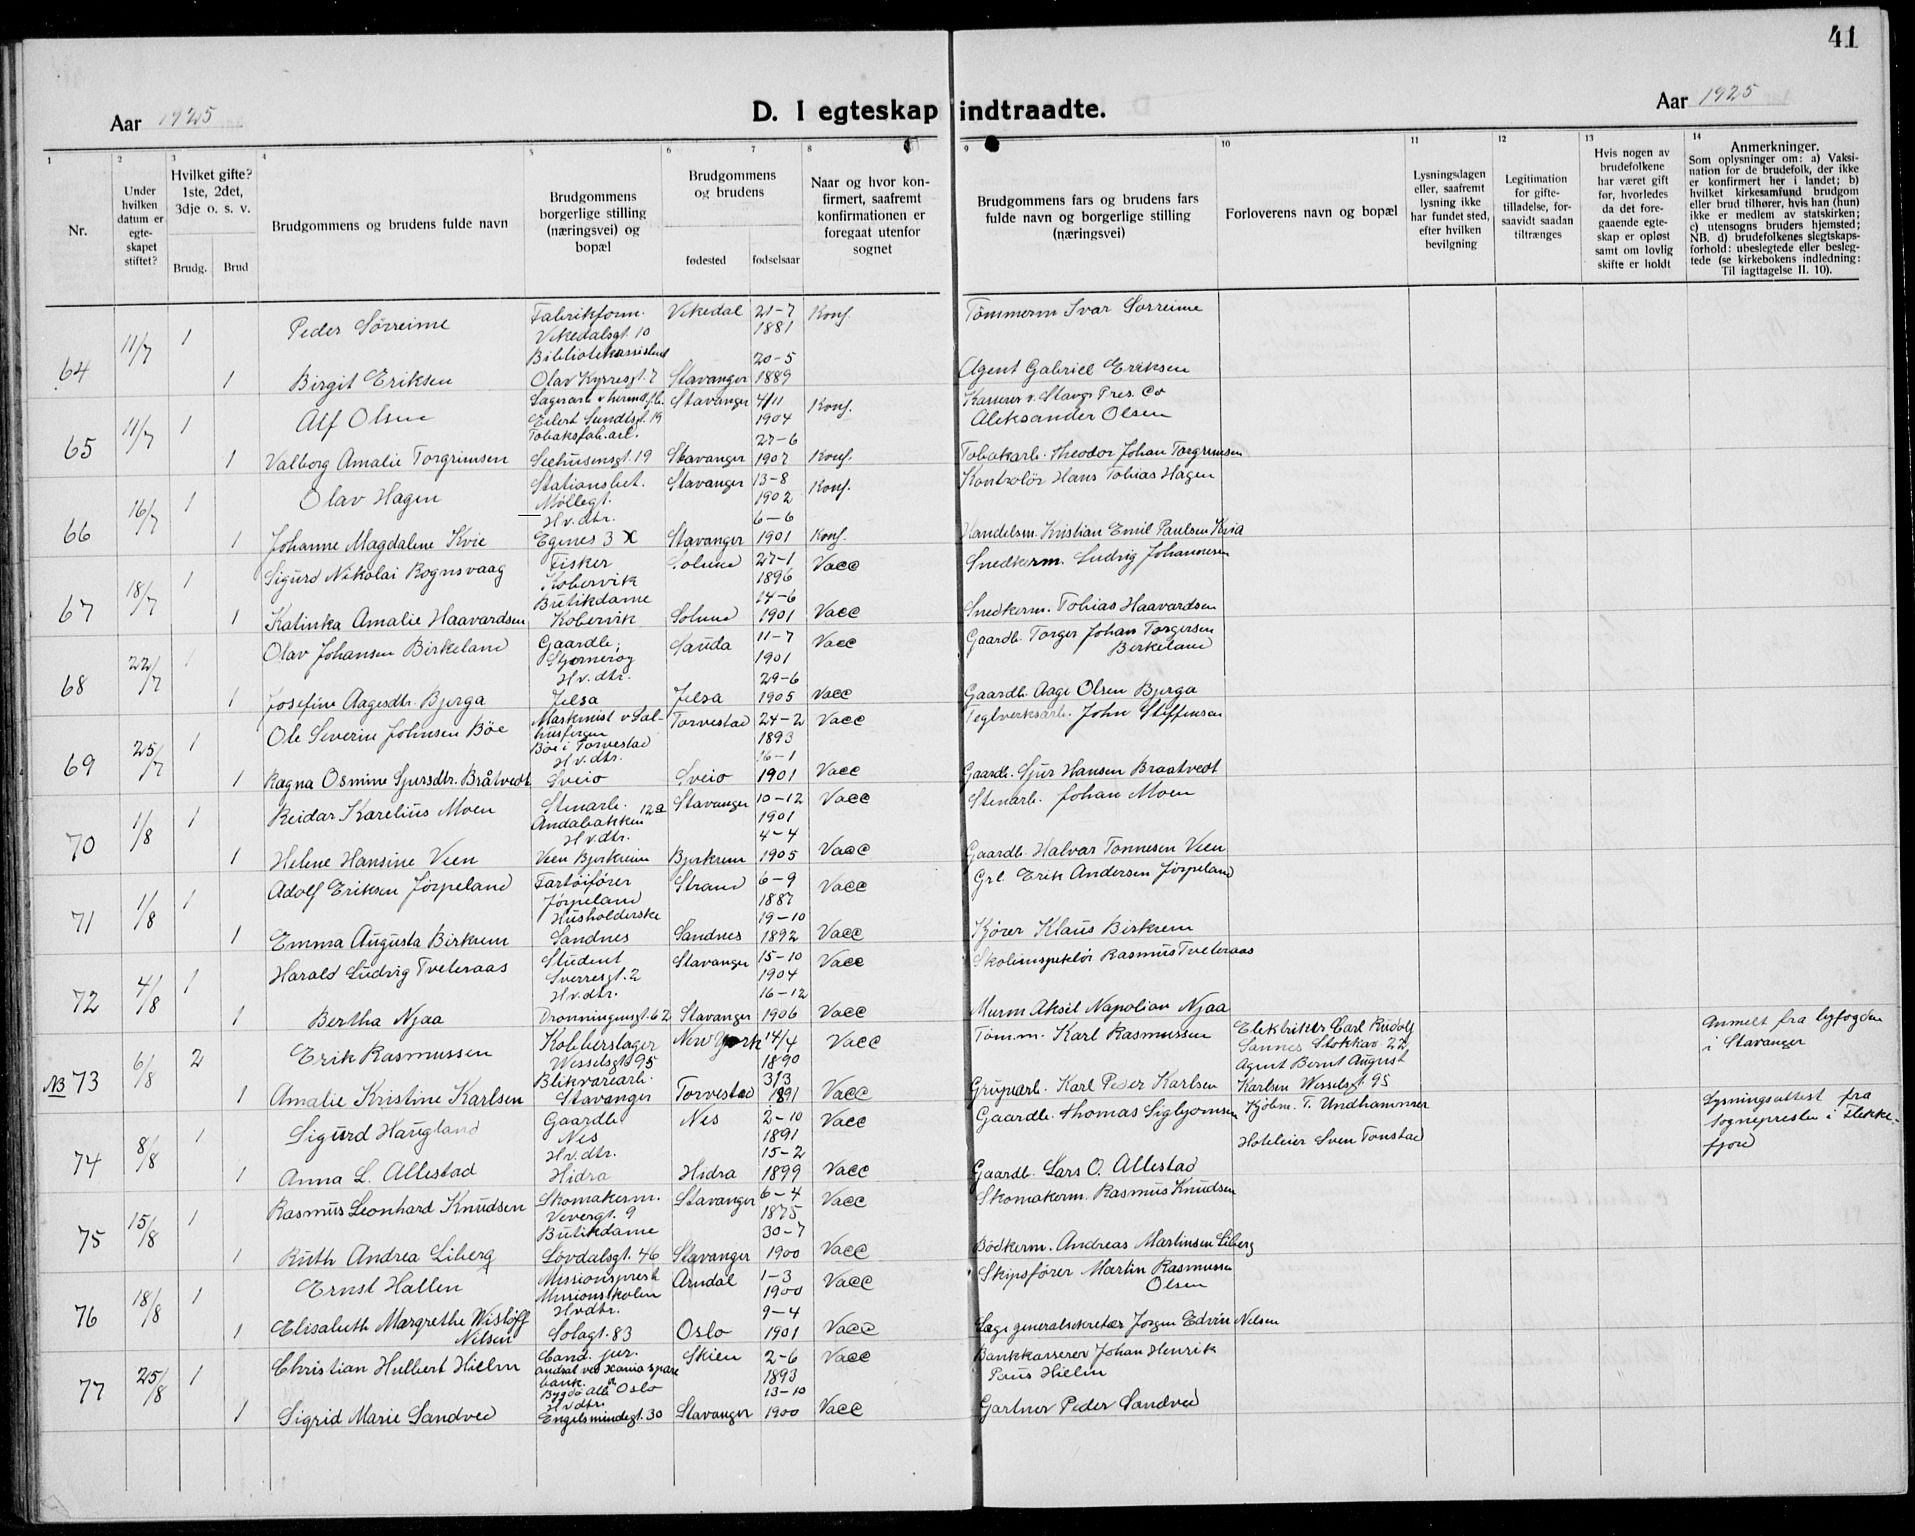 41
Aar 1925
D. I egteskap indtraadte.
Aar 1925
1 2 3 4 5 6 7 8 9 10 11 12 13 14
Nr.
Under hvilken datum er egteskapet stiftet?
Hvilket gifte? 1ste, 2det, 3dje o. s. v.
Brudg. Brud
Brudgommens og brudens fulde navn
Brudgommens borgerlige stilling (næringsvei) og bopæl
Brudgommens og brudens
fødested fødselsaar
Naar og hvor konfirmert, saafremt konfirmationen er foregaat utenfor sognet
Brudgommens fars og brudens fars fulde navn og borgerlige stilling (næringsvei)
Forloverens navn og bopæl
Lysningsdagen eller, saafremt lysning ikke har fundet sted, efter hvilken bevilgning
Legitimation for giftetilladelse, forsaavidt saadan tiltrænges
Hvis nogen av brudefolkene har været gift før, hvorledes da det foregaaende egteskap er opløst samt om lovlig skifte er holdt
Anmerkninger.
Som oplysninger om: a) Vaksination for de brudefolk, der ikke er konfirmert her i landet; b) hvilket kirkesamfund brudgom eller brud tilhører, hvis han (hun) ikke er medlem av statskirken; c) utensogns bruders hjemsted; NB. d) brudefolkenes slegtskapsforhold: ubeslegtede eller beslegtede (se kirkebokens indledning: Til iagttagelse II. 10).
64 11/7 1 Peder Sørreime Fabrikform. Vikedalsgt. 10 Vikedal 21-7 1881 Konf. Tømmerm Ivar Sørreime
1 Birgit Eriksen Bibliotekassistent Olav Kyrresgt. 7 Stavanger 20-5 1889 Agent Gabriel Eriksen
65 11/7 1 Alf Olsen Lagerarb v hermf.fb. Eilert Sundtsgt. 19 Stavanger 4/11 1904 Konf. Kasserer v. Stavgr Pres. Co Aleksander Olsen
1 Valborg Amalie Torgrimsen Tobaksfab.arb. Seehusensgt. 19 Stavanger 27-6 1907 Konf. Tobakarb. Theodor Johan Torgrimsen
66 16/7 1 Olav Hagen Stationsbet. Møllegt. Stavanger 13-8 1902 Konf. Kontrolør Hans Tobias Hagen
1 Johanne Magdalene Kvie Hv.dtr. Egenes 3 X Stavanger 6-6 1901 Konf. Handelsm. Kristian Emil Paulsen Kvia
67 18/7 1 Sigurd Nikolai Rognsvaag Fisker Kobervik Solund 27-1 1896 Vacc Snedkerm. Ludvig Johannesen
1 Katinka Amalie Haavardsen Butikdame Kobervik Solund 14-6 1901 Vacc Snedkerm. Tobias Haavardsen
68 22/7 1 Olav Johansen Birkeland Gaardb; Stjernerøy Sauda 11-7 1901 Vacc Gaardb. Torger Johan Torgersen Birkeland
1 Josefine Aagesdtr. Bjerga Hv.dtr. Jelsa Jelsa 29-6 1905 Vacc Gaardb. Aage Olsen Bjerga
69 25/7 1 Ole Severin Johnsen Böe Maskinist v Salhusfergen Böe i Torvestad Torvestad 24-2 1893 Vacc Teglverksarb. John Steffensen
1 Ragna Osmine Sjursdtr. Bråtvedt Hv.dtr. Sveio Sveio 16-1 1901 Vacc Gaardb. Sjur Hansen Braatvedt
70 1/8 1 Reidar Karelius Moen Stenarb. Andabakken 12a Stavanger 10-12 1901 Vacc Stenarb. Johan Moen
1 Helene Hansine Veen Hv.dtr. Veen Bjerkreim Bjerkrem 4-4 1905 Vacc Gaardb. Halvar Tonnesen Veen
71 1/8 1 Adolf Eriksen Jørpeland Fartøifører Jørpeland Strand 6-9 1887 Vacc Grl. Erik Andersen Jørpeland
1 Emma Augusta Birkrem Husholderske Sandnes Sandnes 19-10 1892 Vacc Kjører Klaus Birkrem
72 4/8 1 Harald Ludvig Tveteraas Student Sverresgt. 2 Stavanger 15-10 1904 Vacc Skoleinspektør Rasmus Tveteraas
1 Bertha Njaa Hv.dtr. Dronningensgt. 62 Stavanger 16-12 1906 Vacc Murm Aksel Napolion Njaa
NB 73 6/8 2 Erik Rasmussen Kobberslager Wesselsgt 95 New York 14/4 1890 Vacc Tøm.m. Karl Rasmussen Elektriker Carl Rudolf Sannes Stokkav 22, Anmelt fra byfogden i Stavanger
1 Amalie Kristine Karlsen Blikvarearb. Stavanger Torvestad 3/3 1891 Vacc Grupearb. Karl Peder Karlsen Agent Bernt August Karlsen Wesselsgt 95
74 8/8 1 Sigurd Haugland Gaardb Nes Nes 2-10 1891 Vacc Gaardb. Thomas Sigbjørnsen Kjøbm. T. Undhammer Lysningsattest fra sognepresten i Flekkefjord
1 Anna L. Allestad Hv.dtr. Hidra Hidra 15-2 1899 Vacc Gaardb. Lars O. Allestad Hoteleier Sven Tonstad
75 15/8 1 Rasmus Leonhard Knudsen Skomakerm. Vevergt. 9 Stavanger 6-4 1875 Vacc Skomakerm. Rasmus Knudsen
1 Ruth Andrea Liberg Butikdame Løvdalsgt. 46 Stavanger 30-7 1900 Vacc Bødkerm. Andreas Martinsen Liberg
76 18/8 1 Ernst Hallen Missionsprest Missionsskolen Arndal 1-3 1900 Vacc Skipsfører Martin Rasmussen Olsen
1 Elisabeth Margrethe Wisløff Nilsen Hvdtr. Solagt. 83 Oslo 9-4 1901 Vacc Lage generalsekretær Jørgen Edvin Nilsen
77 25/8 1 Christian Hulbert Hielm Cand. jur. andsat ved Xania sparebank. Bygdø Alle Oslo Skien 2-6 1893 Vacc Bankkasserer Johan Henrik Paus Hielm
1 Sigrid Marie Sandved Hv.dtr. Engelsmindegt. 30 Stavanger 13-10 1900 Vacc Gartner Peder Sandved